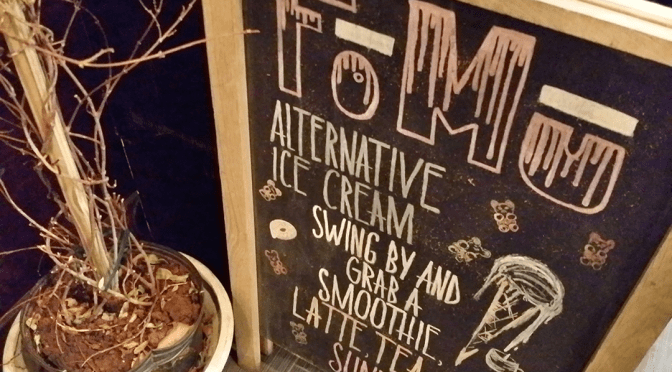 FōMū
ALTERNATIVE
ICE CREAM
SWING BY AND
GRAB A
SMOOTHIE,
LATTE, TEA,